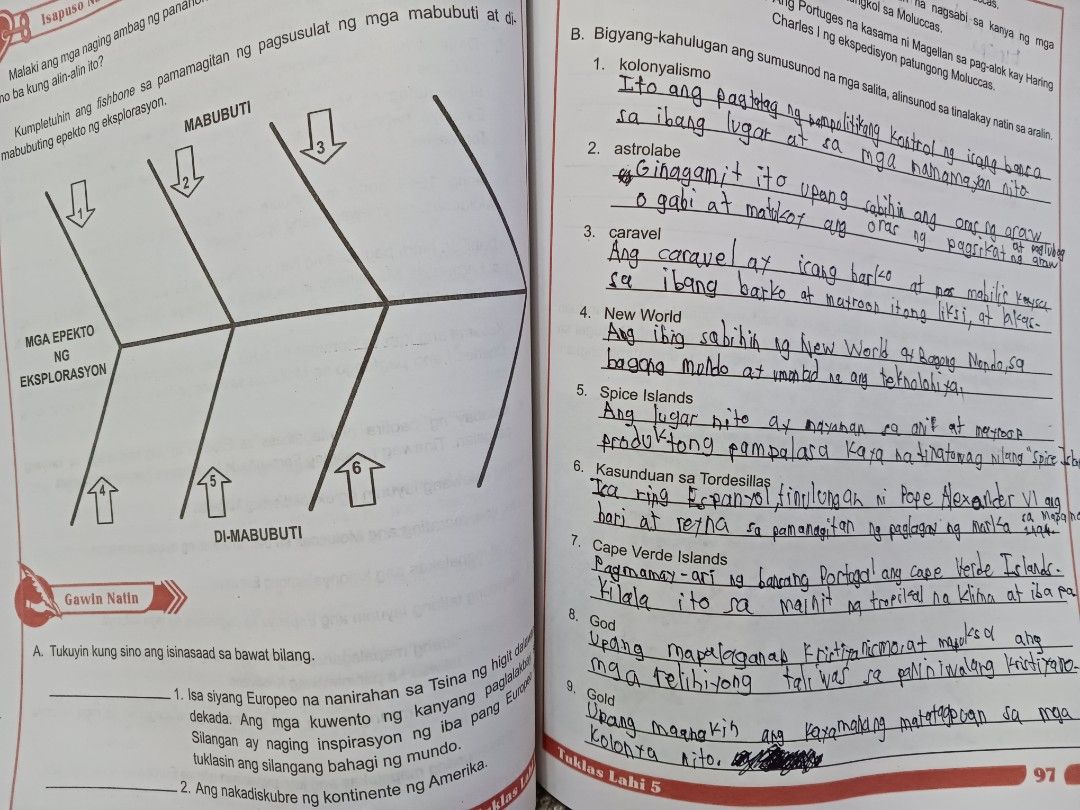 8
Isapuso N
Malaki ang mga naging ambag ng
no ba kung alin-alin ito?
Kumpletuhin ang fishbone sa pamamagitan ng pagsusulat ng mga mabubuti at di-
mabubuting epekto ng eksplorasyon.
MABUBUTI
1
2
3
MGA EPEKTO
NG
EKSPLORASYON
4
5
6
DI-MABUBUTI
Gawin Natin
A. Tukuyin kung sino ang isinasaad sa bawat bilang.
1. Isa siyang Europeo na nanirahan sa Tsina ng higit
dekada. Ang mga kuwento ng kanyang paglalakbay
Silangan ay naging inspirasyon ng iba pang Europeo
tuklasin ang silangang bahagi ng mundo.
2. Ang nakadiskubre ng kontinente ng Amerika.
na nagsabi sa kanya ng mga
sa Moluccas.
Ang Portuges na kasama ni Magellan sa pag-alok kay Haring
Charles I ng ekspedisyon patungong Moluccas.
B. Bigyang-kahulugan ang sumusunod na mga salita, alinsunod sa tinalakay natin sa aralin.
1. kolonyalismo
Ito ang pagtatag ng pampolitikang kontrol ng isang bansa
sa ibang lugar at sa mga mamamayan nito
2. astrolabe
Ginagamit ito upang sabihin ang oras ng araw
o gabi at matukoy ang oras ng pagsikat at paglubog
ng araw
3. caravel
Ang caravel ay isang barko at mas mabilis kaysa
sa ibang barko at mayroon itong liksi, at lakas.
4. New World
Ang ibig sabihin ng New World ay Bagong Mondo, sa
bagong mundo at umunlad na ang teknolohiya.
5. Spice Islands
Ang lugar nito ay mayaman sa ani at mayroon
produktong pampalasa kaya natinatawag nilang "Spice
6. Kasunduan sa Tordesillas
Isa ring Espanyol, tinulungan ni Pope Alexander VI ang
hari at reyna sa pamamagitan ng paglagay ng marka sa mapa
7. Cape Verde Islands
Pagmamay-ari ng bansang Portogal ang Cape Verde Islands.
Kilala ito sa mainit na tropikal na klima at iba pa
8. God
Upang mapalaganap Kristiyanismo at ang
mga relihiyong taliwas sa paniniwalang kristiyano.
9. Gold
Upang maangkin ang kayamanang matatagpuan sa mga
kolonya nito.
Tuklas Lahi 5
97